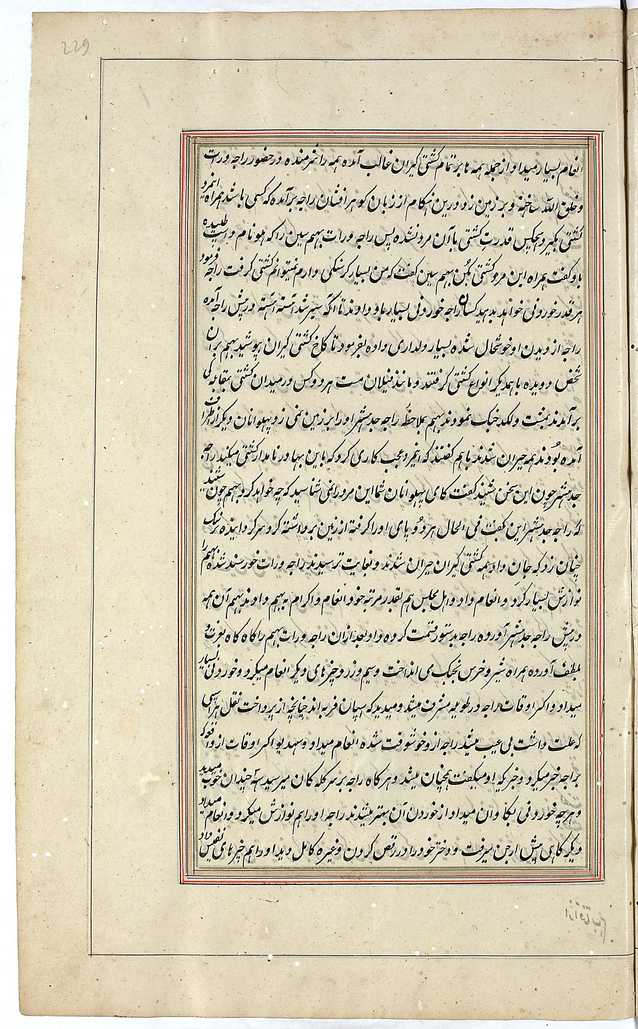 229
انعام بسیار میداد از جمله همه تا بر تمام کشتی گیران غالب آمده همه را شرمنده در حضور راجه ورات
و خلق الله ساخته و بر زمین زد درین هنگام از زبان گوهر افشان راجه برآمد که کسی باشد همراه این مرد
کشتی بگیرد هیچکس قدرت کشتی با آن مرد نشده پس راجه ورات بهیم سین را که هم نام داشت طلبیده
باو گفت همراه این مرد کشتی بکن بهیم سین گفت که من بسیار گرسنگی دارم نمیتوانم کشتی گرفت راجه فرمود
هر قدر خوردنی خواهد بدهید کسان راجه خوردنی بسیار باو دادند تا آنکه سیر شد آهسته آهسته در پیش راجه آمده
راجه از دیدن او خوشحال شده بسیار دلداری داده بفرمود تا کاخ کشتی گیران پوشید بهیم بران
شخص دویده باهمدیگر انواع کشتی گرفتند و مانند فیلان مست هر دو کس در میدان کشتی بمقابله
برآمدند بمشت و لکد جنک نمودند بهیم بملاحظه راجه جدهشتر او را بر زمین نمی زد پهلوانان دیگر از اطراف
آمده بودند همه حیران شدند باهم گفتند که امروز عجب کاری کرد که باین بهادر نامدار کشتی میکند راجه
جدهشتر چون این سخن شنید گفت که ای پهلوانان شما این مرد را نمی شناسید که چه خواهد کرد بهیم چون شنید
که راجه جدهشتر این گفت فی الحال هر دو پای او را گرفته از زمین برداشته گرد سر گردانیده بر سنک
چنان زد که جان داد همه کشتی گیران حیران شدند و بغایت ترسیدند راجه ورات خورسند شده بهیم را
نوازش بسیار کرد و انعام داد و اهل مجلس هم بقدر مرتبه خود انعام و اکرام به بهیم دادند بهیم آن همه
در پیش راجه جدهشتر آورده راجه بدستور قسمت کرده داد بعد ازان راجه ورات بهیم را گاه گاه بعزت و
بلطف آورده همراه شیر و خرس بجنگ می انداخت و سیم و زر و چیزهای دیگر انعام میکرد و خوردنی بسیار
میداد و اکثر اوقات راجه در طویله مشرف میشد و میدید که اسپان فربه اند چنانچه از پرداخت نقل هر اسپی
که علت داشت بی عیب میشد راجه از و خوشوقت شده انعام میداد و سهدیو اکثر اوقات از
براجه خبر میکرد و خبر که او میگفت همچنان میشد و هرگاه راجه بر سر گله گاوان میرسید آن چندان خوب میدید
و هر چه خوردنی بگاوان میداد از خوردن آن بهتر میشدند راجه او را هم نوازش میکرد و انعام میداد
دیگر گاهی پیش ارجن میرفت و دختر خود را در رقص کردن و غیره کامل دید او را هم چیزهای نفیس داد